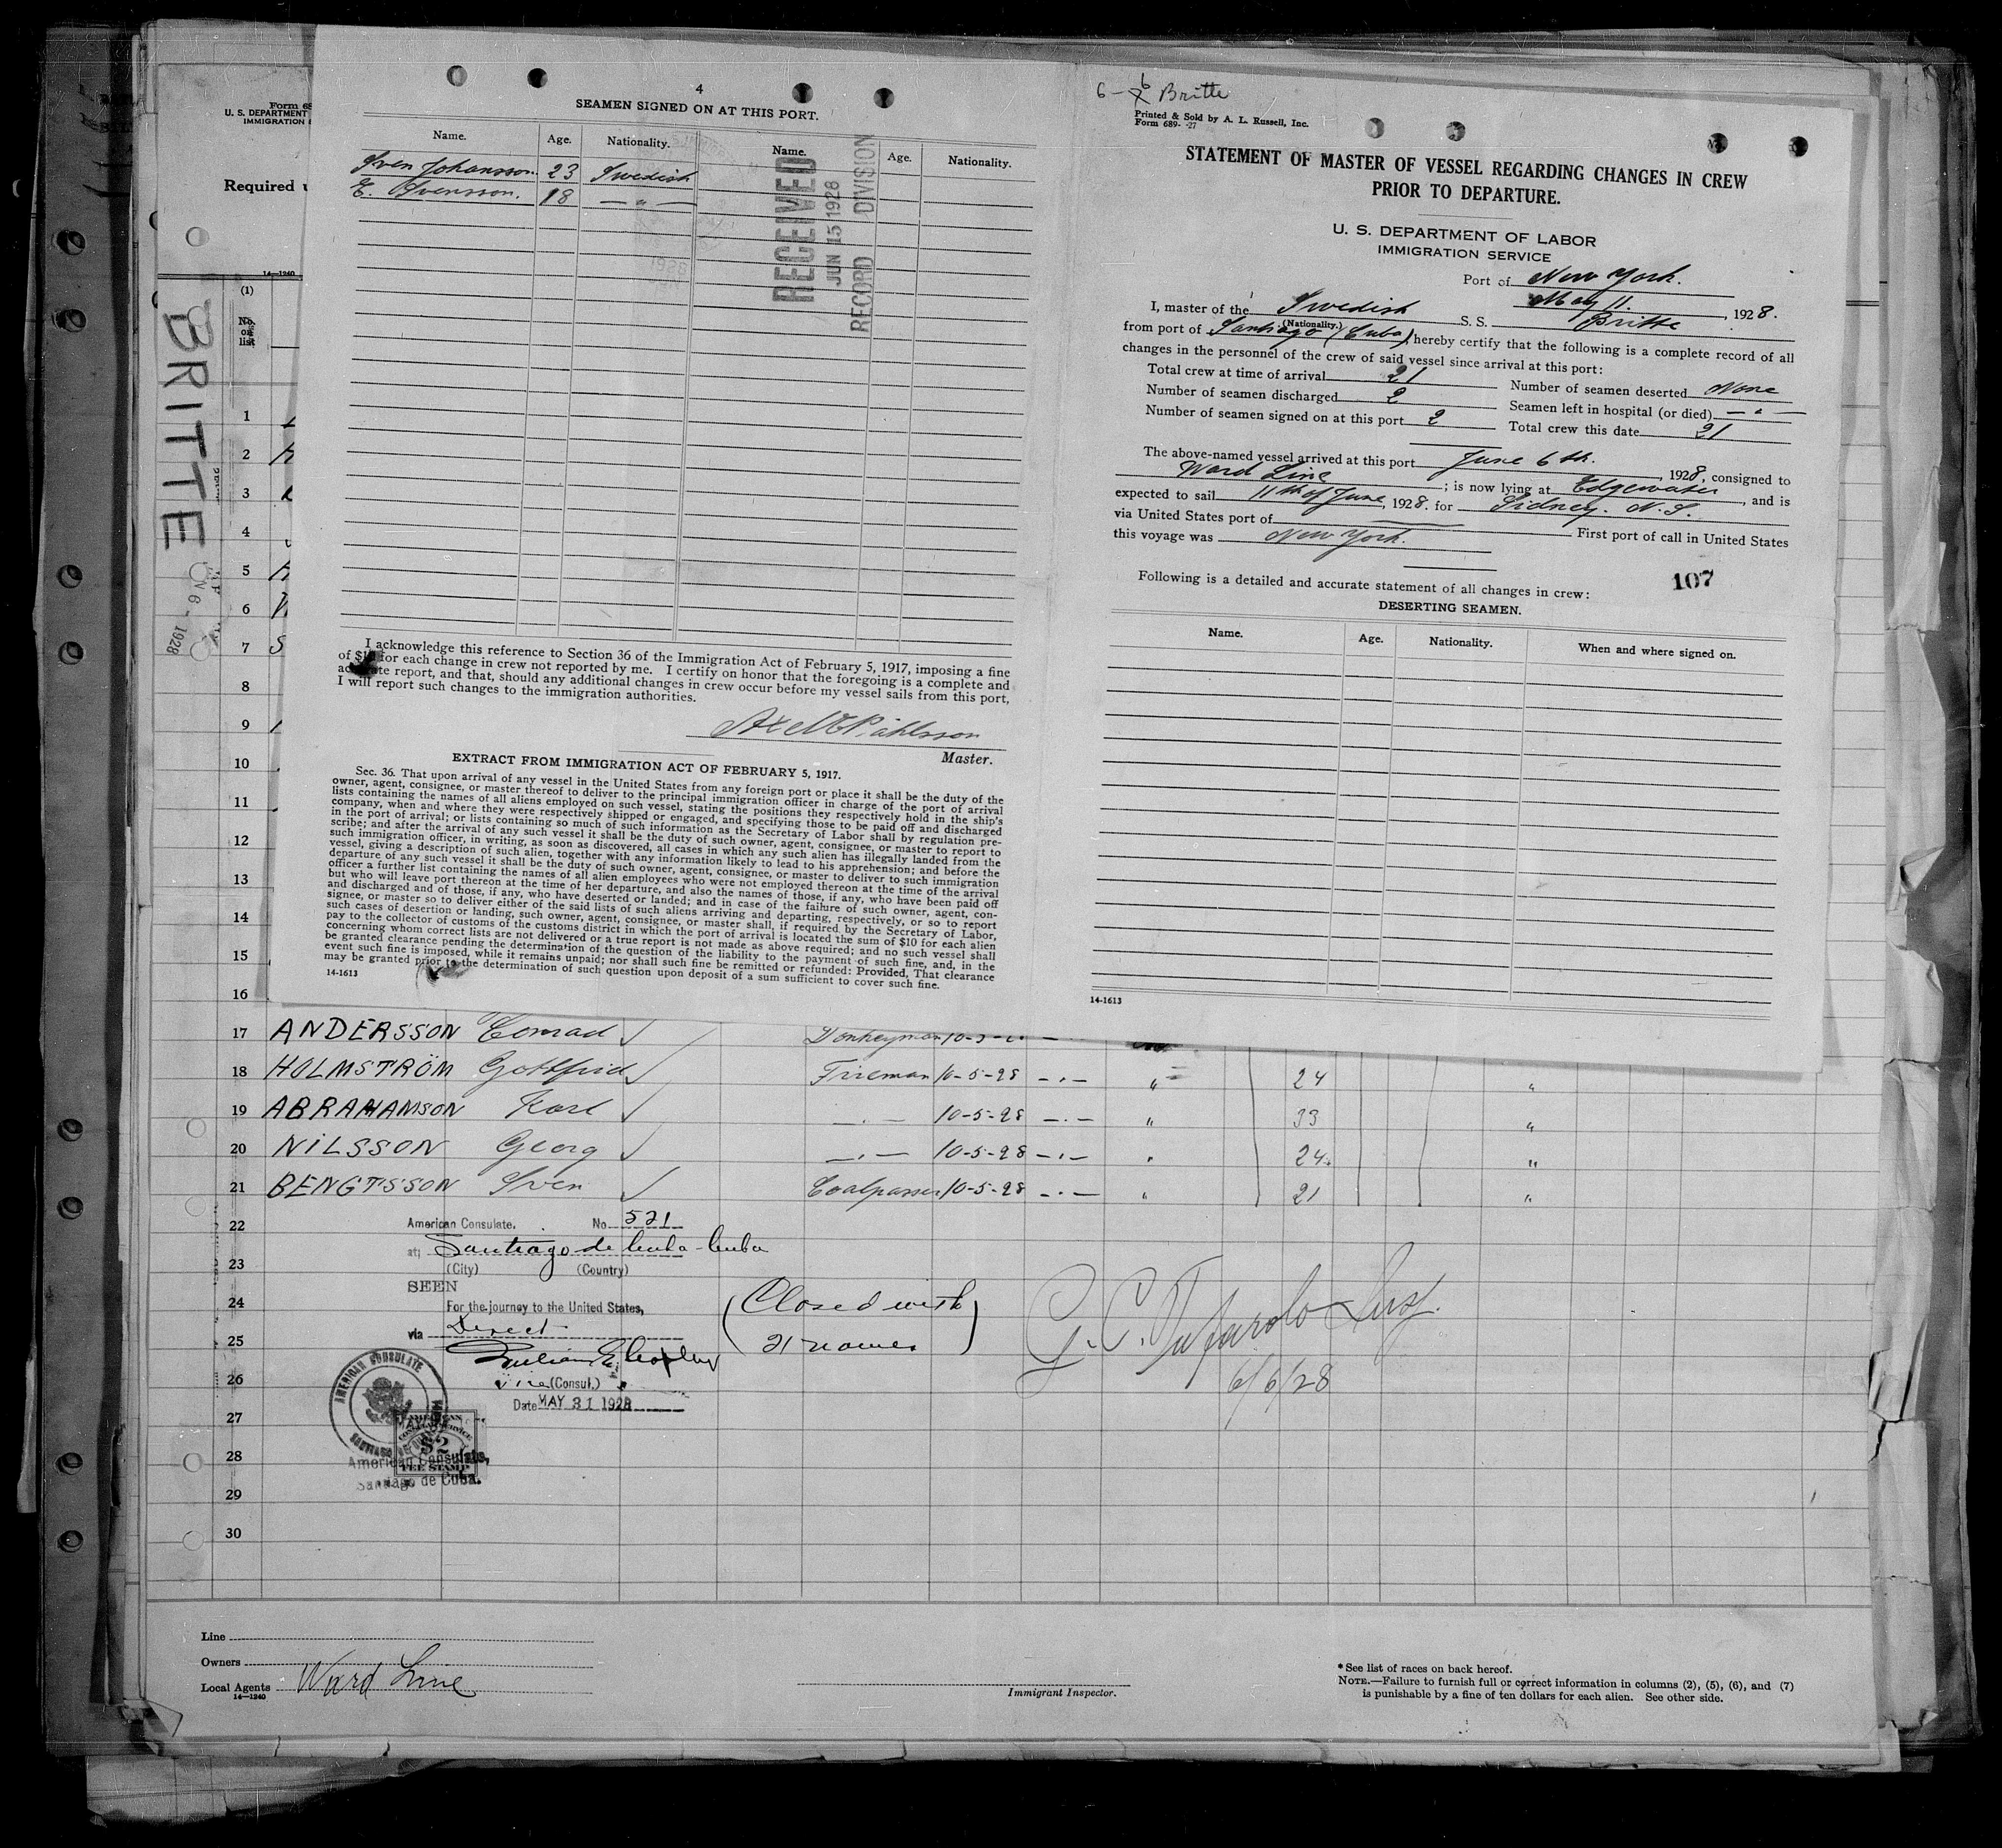 Form 68
U. S. DEPARTMENT
IMMIGRATION
Required
14—1240
(1)
No.
on
list
BRITTE
1928
1
2
3
4
5
6
7 S
8
9
10
11
12
13
14
15
16
4
SEAMEN SIGNED ON AT THIS PORT.
Name. Age. Nationality. Name. Age. Nationality.
Sven Johansson. 23 Swedish
E. Svensson. 18 — " —
RECEIVED
JUN 15 1928
RECORD DIVISION
I acknowledge this reference to Section 36 of the Immigration Act of February 5, 1917, imposing a fine
of $10 for each change in crew not reported by me. I certify on honor that the foregoing is a complete and
accurate report, and that, should any additional changes in crew occur before my vessel sails from this port,
I will report such changes to the immigration authorities.
Axel Påhlsson
Master.
EXTRACT FROM IMMIGRATION ACT OF FEBRUARY 5, 1917.
Sec. 36. That upon arrival of any vessel in the United States from any foreign port or place it shall be the duty of the
owner, agent, consignee, or master thereof to deliver to the principal immigration officer in charge of the port of arrival
lists containing the names of all aliens employed on such vessel, stating the positions they respectively hold in the ship's
company, when and where they were respectively shipped or engaged, and specifying those to be paid off and discharged
in the port of arrival; or lists containing so much of such information as the Secretary of Labor shall by regulation pre-
scribe; and after the arrival of any such vessel it shall be the duty of such owner, agent, consignee, or master to report to
such immigration officer, in writing, as soon as discovered, all cases in which any such alien has illegally landed from the
vessel, giving a description of such alien, together with any information likely to lead to his apprehension; and before the
departure of any such vessel it shall be the duty of such owner, agent, consignee, or master to deliver to such immigration
officer a further list containing the names of all alien employees who were not employed thereon at the time of the arrival
but who will leave port thereon at the time of her departure, and also the names of those, if any, who have been paid off
and discharged and of those, if any, who have deserted or landed; and in case of the failure of such owner, agent, con-
signee, or master so to deliver either of the said lists of such aliens arriving and departing, respectively, or so to report
such cases of desertion or landing, such owner, agent, consignee, or master shall, if required by the Secretary of Labor,
pay to the collector of customs of the customs district in which the port of arrival is located the sum of $10 for each alien
concerning whom correct lists are not delivered or a true report is not made as above required; and no such vessel shall
be granted clearance pending the determination of the question of the liability to the payment of such fine, and, in the
event such fine is imposed, while it remains unpaid; nor shall such fine be remitted or refunded: Provided, That clearance
may be granted prior to the determination of such question upon deposit of a sum sufficient to cover such fine.
14-1613
6-6 Britte
Printed & Sold by A. L. Russell, Inc.
Form 689- -27
STATEMENT OF MASTER OF VESSEL REGARDING CHANGES IN CREW
PRIOR TO DEPARTURE.
U. S. DEPARTMENT OF LABOR
IMMIGRATION SERVICE
Port of New York.
May 11. , 1928.
I, master of the Swedish S. S. Britte
(Nationality.)
from port of Santiago (Cuba), hereby certify that the following is a complete record of all
changes in the personnel of the crew of said vessel since arrival at this port:
Total crew at time of arrival 21 Number of seamen deserted None
Number of seamen discharged 2 Seamen left in hospital (or died) — " —
Number of seamen signed on at this port 2 Total crew this date 21
The above-named vessel arrived at this port June 6th. , 1928, consigned to
Ward Line ; is now lying at Edgewater , and is
expected to sail 11th of June, 1928. for Sidney. N.S.
via United States port of — First port of call in United States
this voyage was New York.
Following is a detailed and accurate statement of all changes in crew: 107
DESERTING SEAMEN.
Name. Age. Nationality. When and where signed on.
14-1613
17 ANDERSSON Conrad ✓ Donkeyman
18 HOLMSTRÖM Gottfrid ✓ Fireman 10-5-28 — . — " 24 "
19 ABRAHAMSON Karl ✓ — . — 10-5-28 — . — " 33 "
20 NILSSON Georg ✓ — . — 10-5-28 — . — " 24 "
21 BENGTSSON Sven ✓ Coalpasser 10-5-28 — . — " 21 "
22
23
24
25
26
27
28
29
30
American Consulate. No. 521
at Santiago de Cuba - Cuba
(City) (Country)
SEEN
For the journey to the United States,
via Direct
Vice (Consul.)
Date MAY 31 1928
(Closed with
21 names)
Insp.
6/6/28
AMERICAN CONSULATE
AMERICAN
CONSULAR SERVICE
$2
FEE STAMP
American Consulate,
Santiago de Cuba.
Line
Owners
Local Agents Ward Line
14—1240
Immigrant Inspector.
* See list of races on back hereof.
NOTE.—Failure to furnish full or correct information in columns (2), (5), (6), and (7)
is punishable by a fine of ten dollars for each alien. See other side.